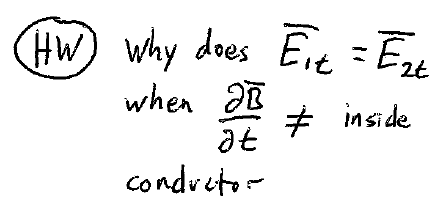 HW Why does E̅₁t = E̅₂t
when ∂B̅/∂t ≠ inside
conductor